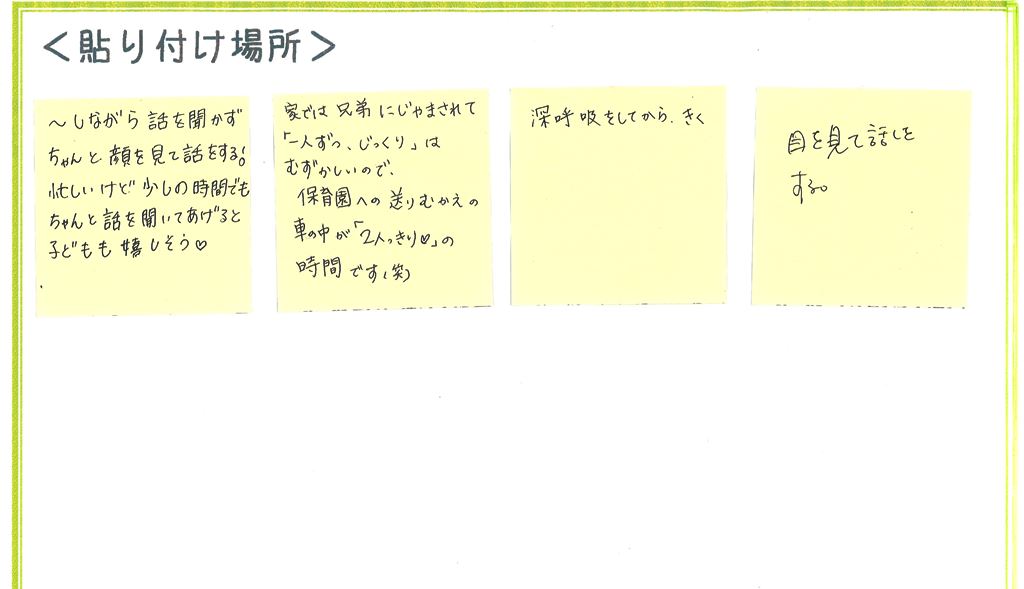 ＜貼り付け場所＞
～しながら話を聞かず
ちゃんと顔を見て話をする!
忙しいけど少しの時間でも
ちゃんと話を聞いてあげると
子どもも嬉しそう♡
家では兄弟にじゃまされて
「一人ずつ、じっくり」は
むずかしいので、
保育園への送りむかえの
車の中が「2人っきり♡」の
時間です(笑)
深呼吸をしてから、きく
目を見て話しを
する。